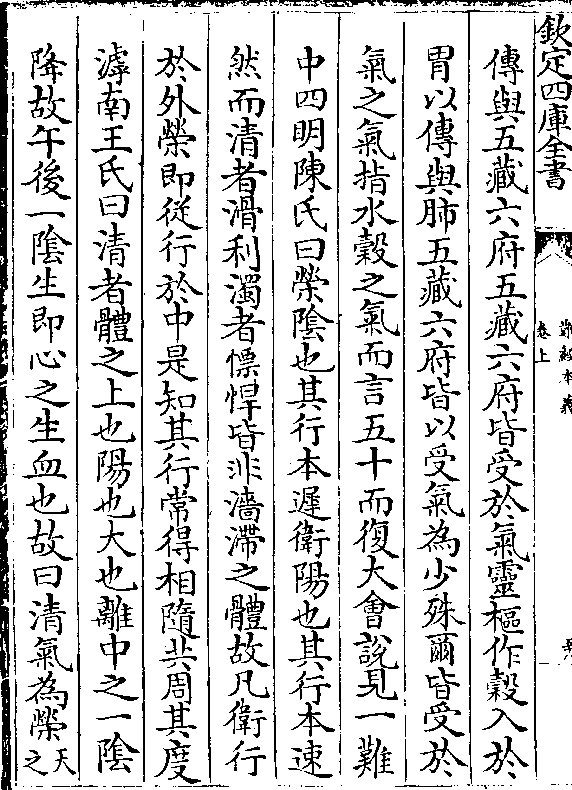 欽定四庫全書
難經本義
卷上
傳與五藏六府五藏六府皆受於氣靈樞作穀入於
胃以傳與肺五藏六府皆以受氣為少殊爾皆受於
氣之氣指水穀之氣而言五十而復大會說見一難
中四明陳氏曰榮陰也其行本遲衛陽也其行本速
然而清者滑利濁者慓悍皆非濇滯之體故凡衛行
於外榮即從行於中是知其行常得相隨共周其度
滹南王氏曰清者體之上也陽也火也離中之一陰
降故午後一陰生即心之生血也故曰清氣為榮天
之